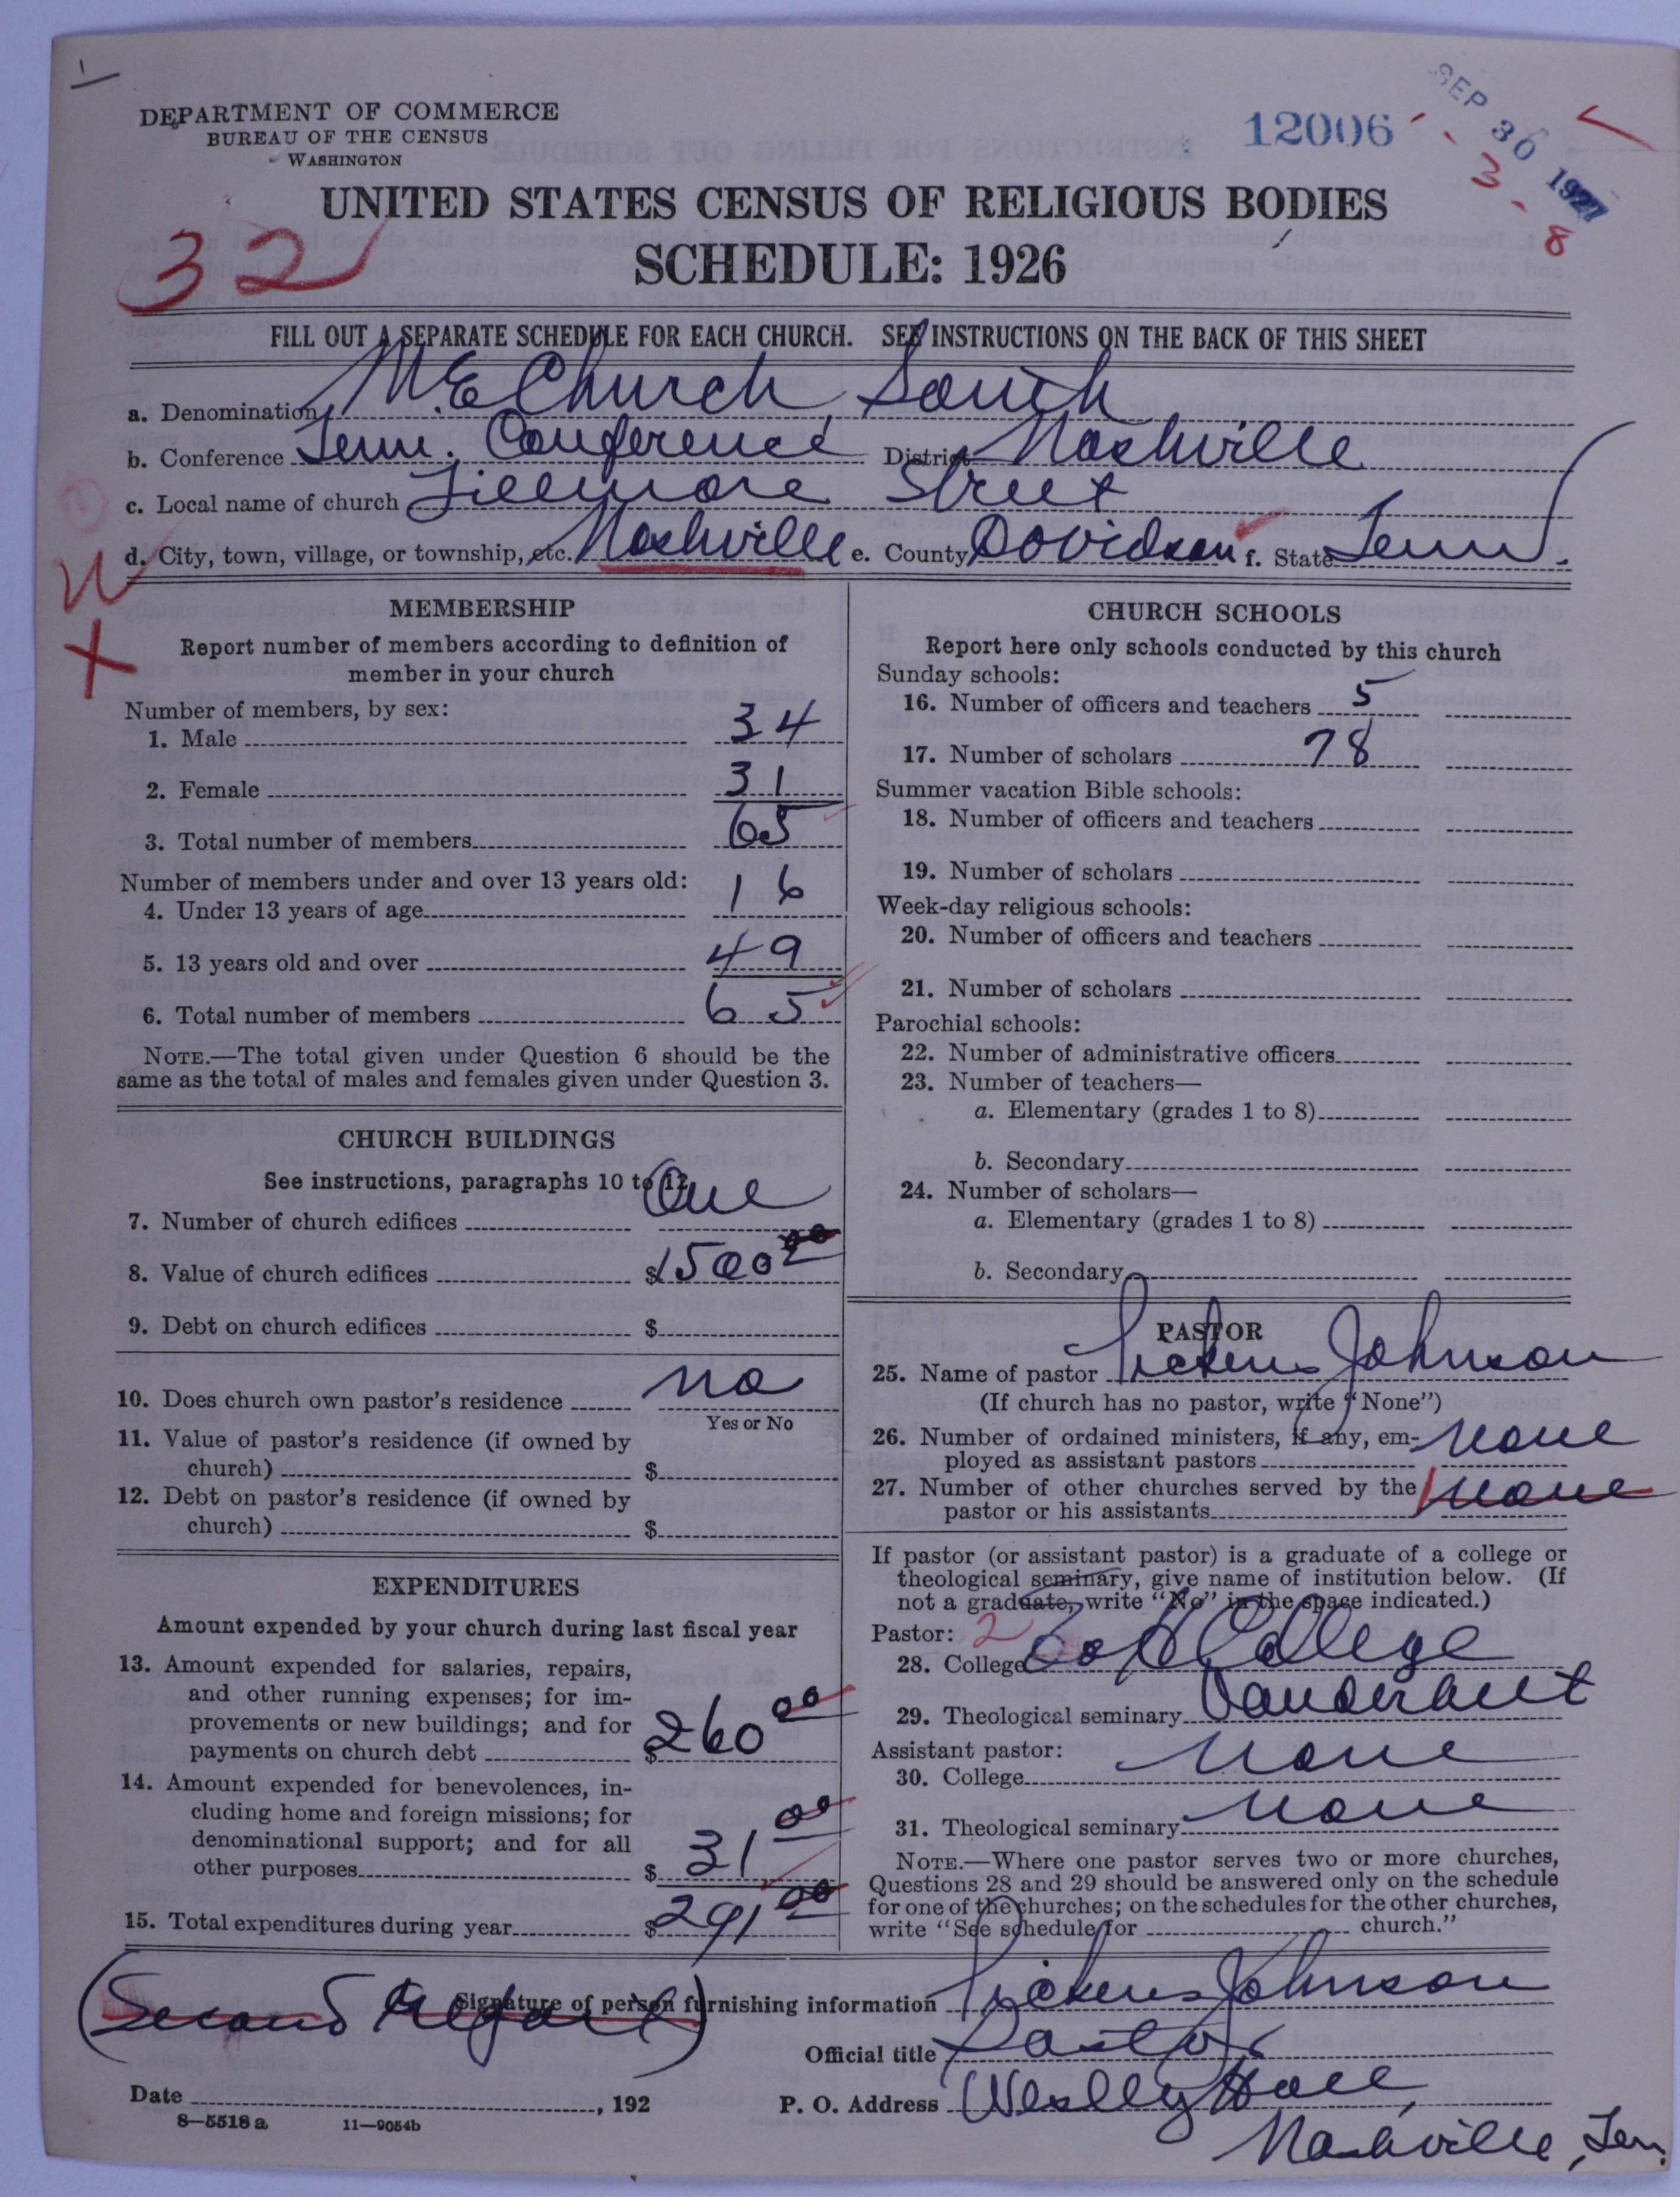 DEPARTMENT OF COMMERCE
BUREAU OF THE CENSUS
WASHINGTON
12006
SEP 30 1927
3 - 8
UNITED STATES CENSUS OF RELIGIOUS BODIES
32
SCHEDULE: 1926
FILL OUT A SEPARATE SCHEDULE FOR EACH CHURCH. SEE INSTRUCTIONS ON THE BACK OF THIS SHEET
a. Denomination M.E Church, South
b. Conference Tenn. Conference District Nashville
c. Local name of church Fillmore Street
d. City, town, village, or township, etc. Nashville e. County Davidson f. State Tenn.
MEMBERSHIP
Report number of members according to definition of
member in your church
Number of members, by sex:
1. Male 34
2. Female 31
3. Total number of members 65
Number of members under and over 13 years old:
4. Under 13 years of age 16
5. 13 years old and over 49
6. Total number of members 65
NOTE.—The total given under Question 6 should be the
same as the total of males and females given under Question 3.
CHURCH BUILDINGS
See instructions, paragraphs 10 to 12
7. Number of church edifices One
8. Value of church edifices $1500 00
9. Debt on church edifices $
10. Does church own pastor's residence no
Yes or No
11. Value of pastor's residence (if owned by
church) $
12. Debt on pastor's residence (if owned by
church) $
EXPENDITURES
Amount expended by your church during last fiscal year
13. Amount expended for salaries, repairs,
and other running expenses; for im-
provements or new buildings; and for
payments on church debt $260 00
14. Amount expended for benevolences, in-
cluding home and foreign missions; for
denominational support; and for all
other purposes $ 31 00
15. Total expenditures during year $291 00
CHURCH SCHOOLS
Report here only schools conducted by this church
Sunday schools:
16. Number of officers and teachers 5
17. Number of scholars 78
Summer vacation Bible schools:
18. Number of officers and teachers
19. Number of scholars
Week-day religious schools:
20. Number of officers and teachers
21. Number of scholars
Parochial schools:
22. Number of administrative officers
23. Number of teachers—
a. Elementary (grades 1 to 8)
b. Secondary
24. Number of scholars—
a. Elementary (grades 1 to 8)
b. Secondary
PASTOR
25. Name of pastor Pickens Johnson
(If church has no pastor, write "None")
26. Number of ordained ministers, if any, em-
ployed as assistant pastors None
27. Number of other churches served by the
pastor or his assistants None
If pastor (or assistant pastor) is a graduate of a college or
theological seminary, give name of institution below. (If
not a graduate, write "No" in the space indicated.)
Pastor: 2
28. College College
29. Theological seminary Vanderbilt
Assistant pastor:
30. College None
31. Theological seminary None
NOTE.—Where one pastor serves two or more churches,
Questions 28 and 29 should be answered only on the schedule
for one of the churches; on the schedules for the other churches,
write "See schedule for church."
(Second Report)
Signature of person furnishing information Pickens Johnson
Official title Pastor
Date , 192
P. O. Address Weslley Hall,
Nashville, Ten.
8—5518a 11—9054b